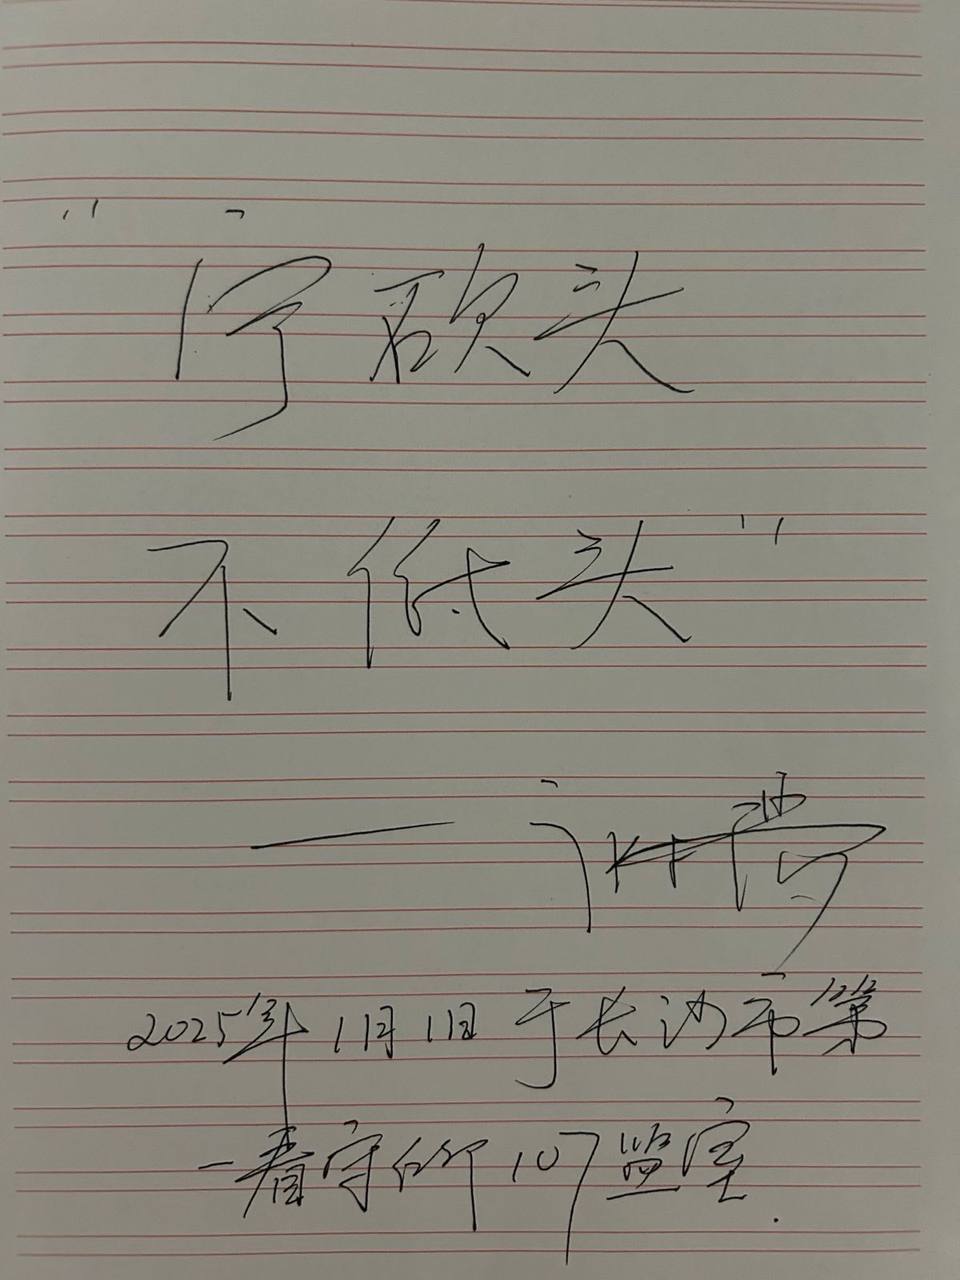 "宁砍头
不低头"
——谢
2025年1月1日于长沙市第
一看守所107监室.